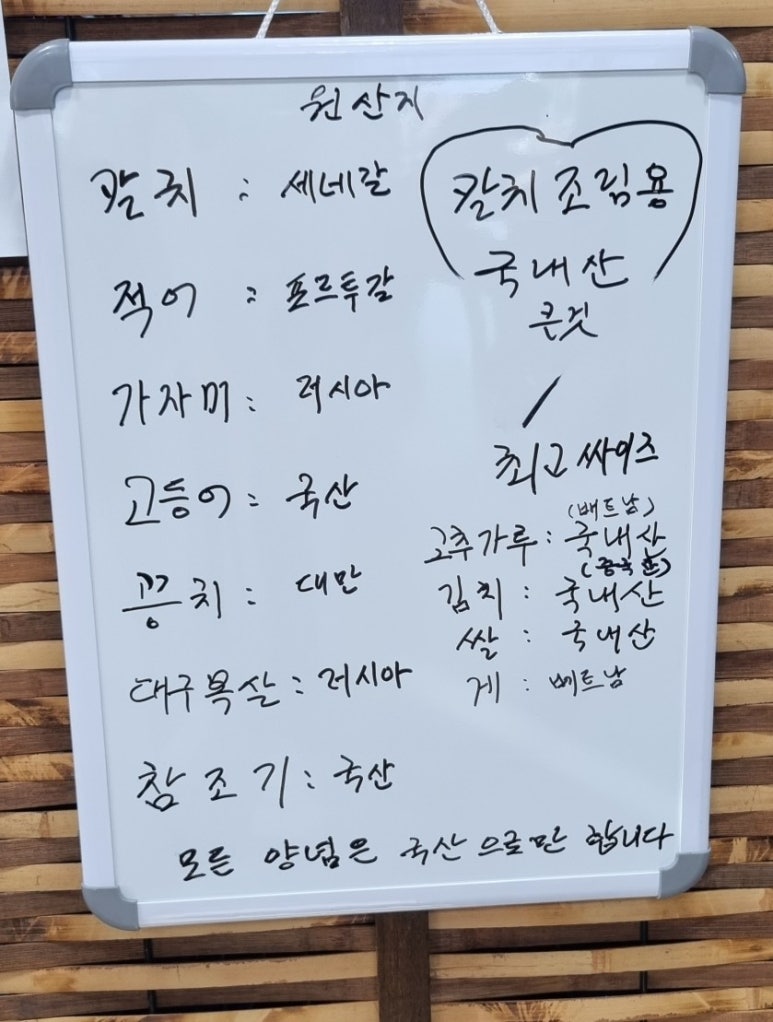 원산지
갈치 : 세네갈
적어 : 포르투갈
가자미 : 러시아
고등어 : 국산
꽁치 : 대만
대구뽈살 : 러시아
참조기 : 국산
갈치조림용
국내산
큰것
/
최고싸이즈
(베트남)
고추가루 : 국내산
(중국산)
김치 : 국내산
쌀 : 국내산
게 : 베트남
모든 양념은 국산으로만 합니다